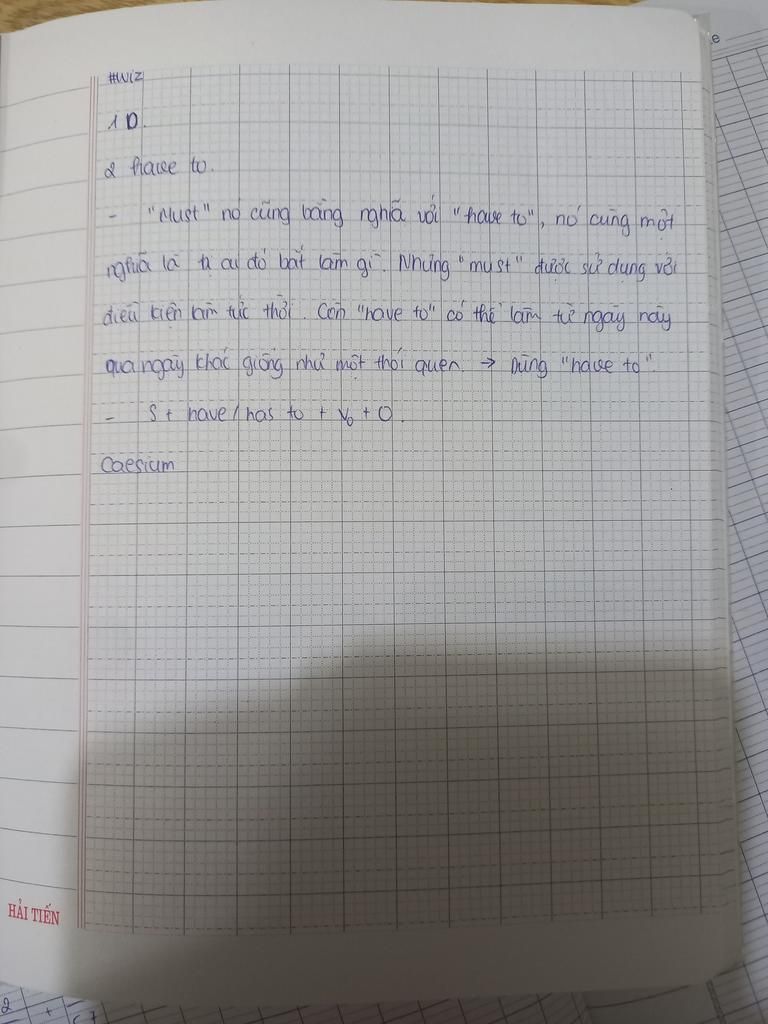 #Wiz
1 D.
2 have to.
- "Must" nó cũng bằng nghĩa với "have to", nó cũng một
nghĩa là bị ai đó bắt làm gì. Nhưng "must" được sử dụng với
điều kiện làm tức thời. Còn "have to" có thể làm từ ngày này
qua ngày khác giống như một thói quen → Dùng "have to".
- S + have / has to + V₀ + O.
Caesium
HẢI TIẾN